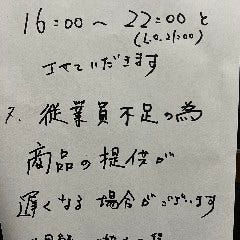 16:00～22:00と
(L.O.21:00)
させていただきます
7. 従業員不足の為
商品の提供が
遅くなる場合がございます